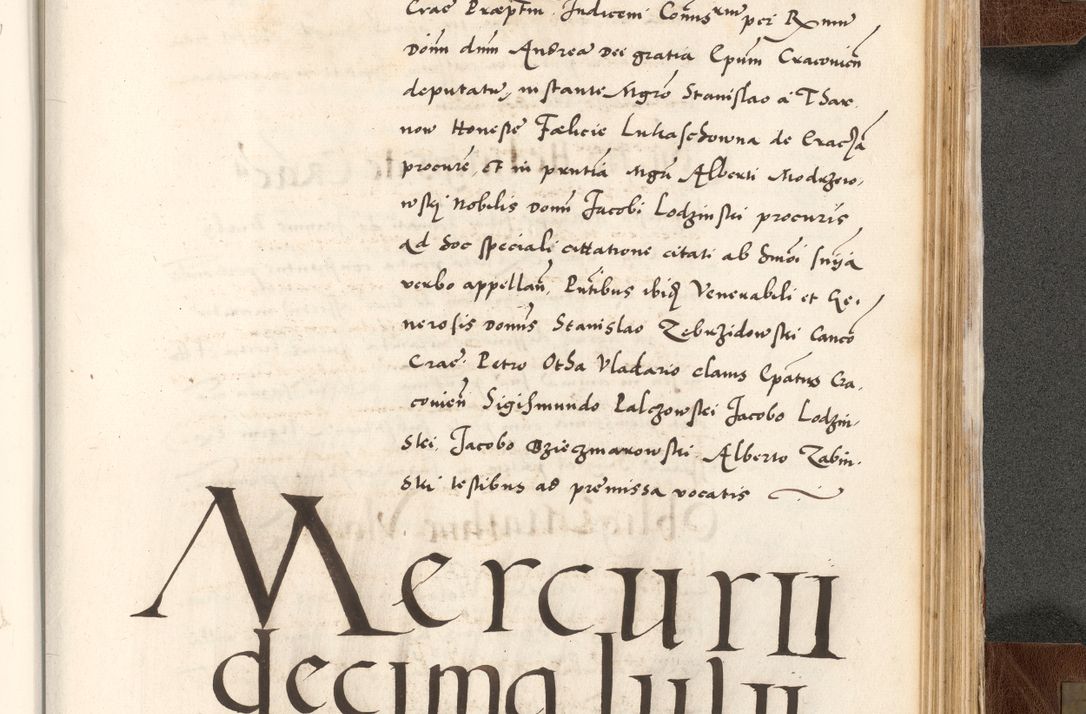 Crae Præptm Iudicem Comisrm per Rmum
Domi dnm Andrea Dei gratia Epum Cracovien
deputatu, instante Mgro Stanislao a Thar,
now Honeste Fælicie Lukaschowna de Crac
procure, et in pntia Mgri Alberti Modrzow,
wskj Nobilis Domi Jacobi Lodzinski procuris
ad hoc speciali cittatione citati ab hmoi snia
verbo appellan, Pntibus ibid Venerabili et Ge,
nerosis Domis Stanislao Zebrzidowski Canco
Crae Petro Otha Vladario clavis Epatus Cra,
covien Sigismundo Palczowski Jacobo Lodzin,
ski, Jacobo Dzieczmarowski Alberto Zabin,
ski testibus ad premissa vocatis
Mercurii
decima Iulii